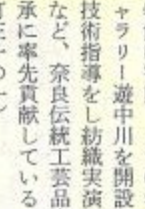 ャラリー遊中川を開設
技術指導をし紡織実演
など、奈良伝統工芸品
承に率先貢献している